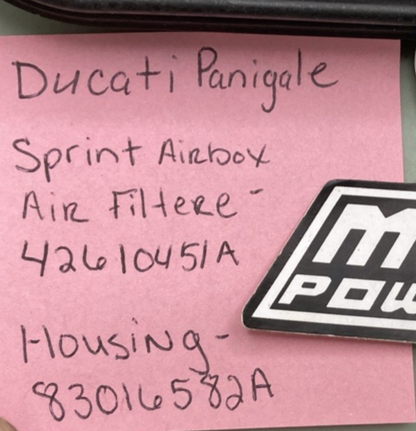 Ducati Panigale
Sprint Airbox
Air Filtere -
42610451A
Housing -
83016582A
POW